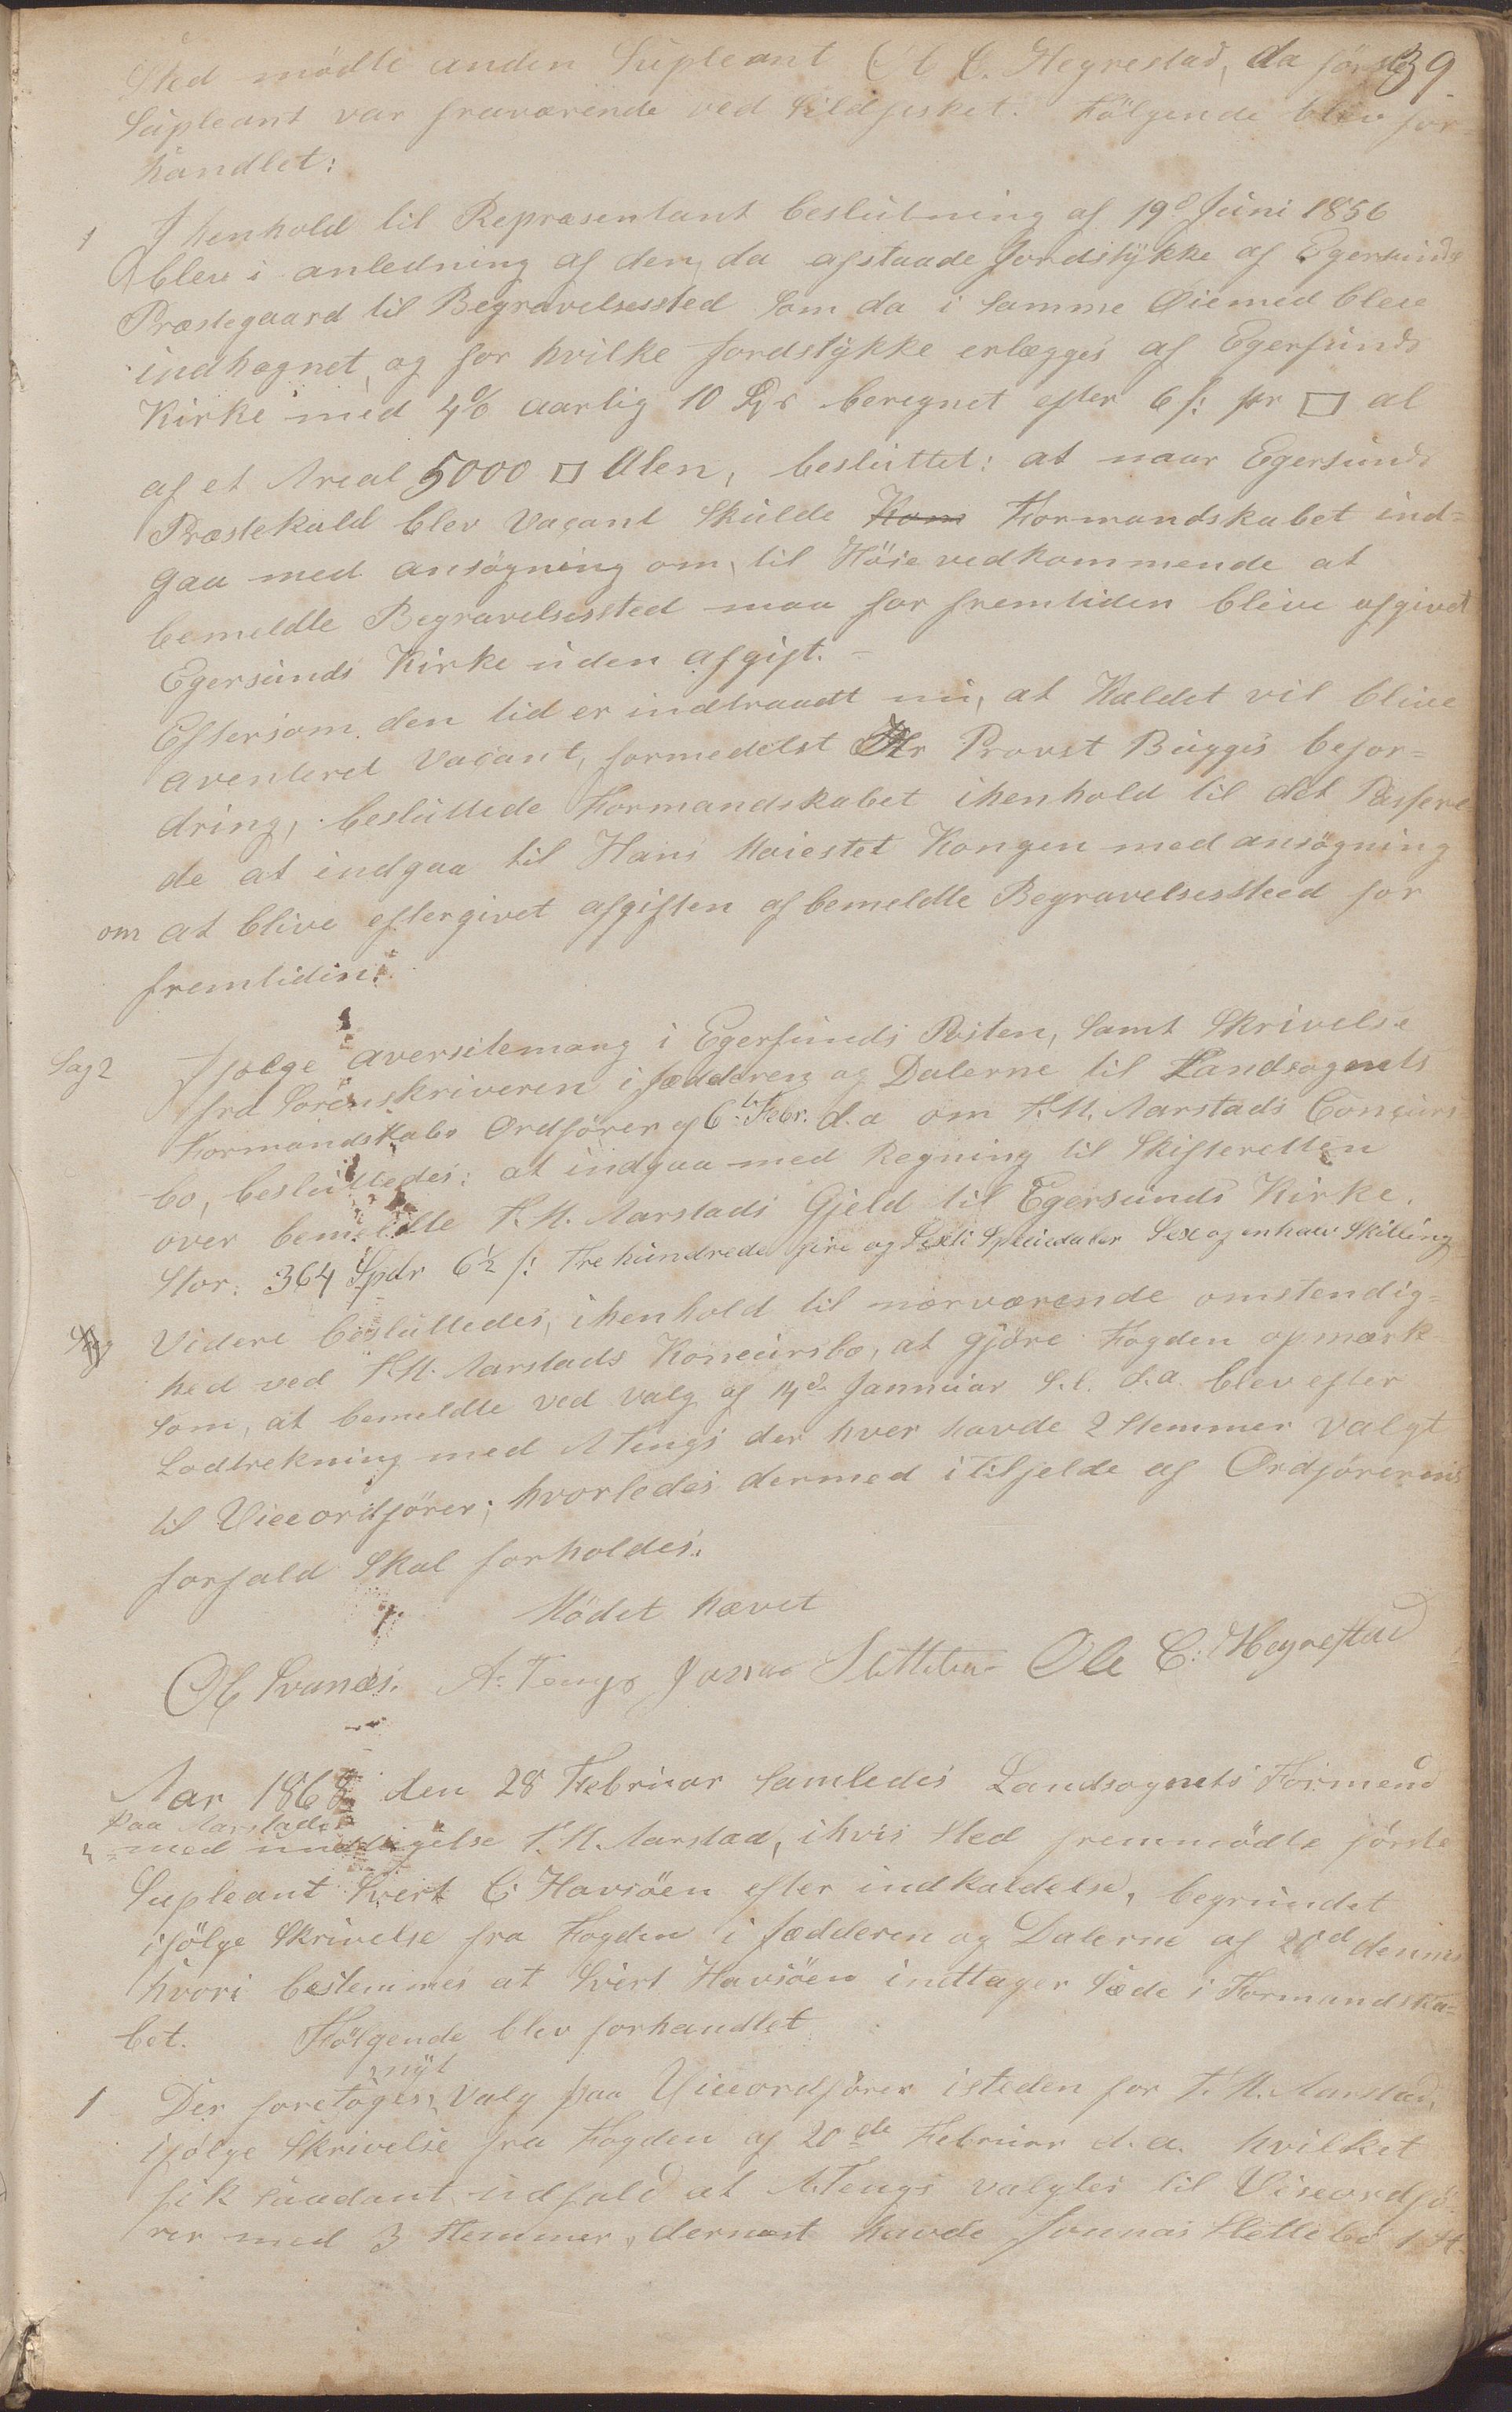 39
Sted mödte anden Supleant Ol C. Hegrestad, da förste
Supleant var fraværende ved Sildfisket. Fölgende blev for=
handlet:
1 I henhold til Repræsentant beslutning af 19d Juni 1856
blev i anledning af den, da afstaade Jordstykke af Egersunds
Præstegaard til Begravelsessted som da i samme Øiemed bleve
indhegnet, og for hvilke Jordstykke erlægges af Egersunds
Kirke med 4% aarlig 10 Spd beregnet efter 6 s: pr □ al
af et Areal 5000 □ Alen, besluttet: at naar Egersunds
Præstekald blev Vacant skulde Kom Formandskabet ind=
gaa med ansögning om, til Höie vedkommende at
bemeldte Begravelsessted maa for fremtiden blive afgivet
Egersunds Kirke uden afgift. -
Eftersom den tid er indtraadt nu, at Kaldet vil blive
aventeret Vacant, formedelst Hr Provst Bugges befor=
dring, besluttede Formandskabet ihenhold til det Passere
de at indgaa til Hans Maiestet Kongen med ansögning
om at blive eftergivet afgiften af bemeldte Begravelsessteed for
fremtiden.
Sag 2 Ifölge avertitemang i Egersunds Posten, samt Skrivelse
fra Sorenskriveren i Jædderen og Dalerne til Landsognets
Formandskabs Ordförer af 6t Febr. d.a om T.M. Aarstads Concurs
bo, besluttedes: at indgaa med Regning til Skifteretten
over bemeldte T.M. Aarstads Gjeld til Egersunds Kirke.
Stor: 364 Spdr 6½ s: Tre hundrede fire og Sexti Speciedaler Sex og en halv Skilling
Sag Videre besluttedes, ihenhold til nærværende omstendig=
hed ved T.M. Aarstads Koncursbo, at gjöre Fogden opmærk
som, at bemeldte ved valg af 14de Jannuar S.l. d.a. blev efter
Lodtrekning med A Tengs der hver havde 2 Stemmer valgt
til Viceordförer; hvorledes dermed i Tilfelde af Ordförerens
forfald skal forholdes.
Mödet hævet
Ol Svanes. A. Tengs Jonas Slettebø Ole C: Hegrestad
Aar 1868 den 28 Februar samledes Landsognets Formend
paa Aarstad
med undtagelse T.M. Aarstad, ihvis Sted fremmödte förste
Supleant Sivert C. Havsöen efter indkaldelse, begrundet
ifölge Skrivelse fra Fogden i Jædderen og Dalerne af 20d dennes
hvori bestemmes at Sivert Havsöen indtager Sæde i Formandska=
bet. Fölgende blev forhandlet
nyt
1 Der foretoges Valg paa Viceordförer isteden for T.M. Aarstad,
ifölge Skrivelse fra Fogden af 20de Februar d.a. hvilket
fik saadant udfald at A Tengs valgtes til Viseordfö=
rer med 3 Stemmer, dernæst havde Jonnas Slettebö 1 St.